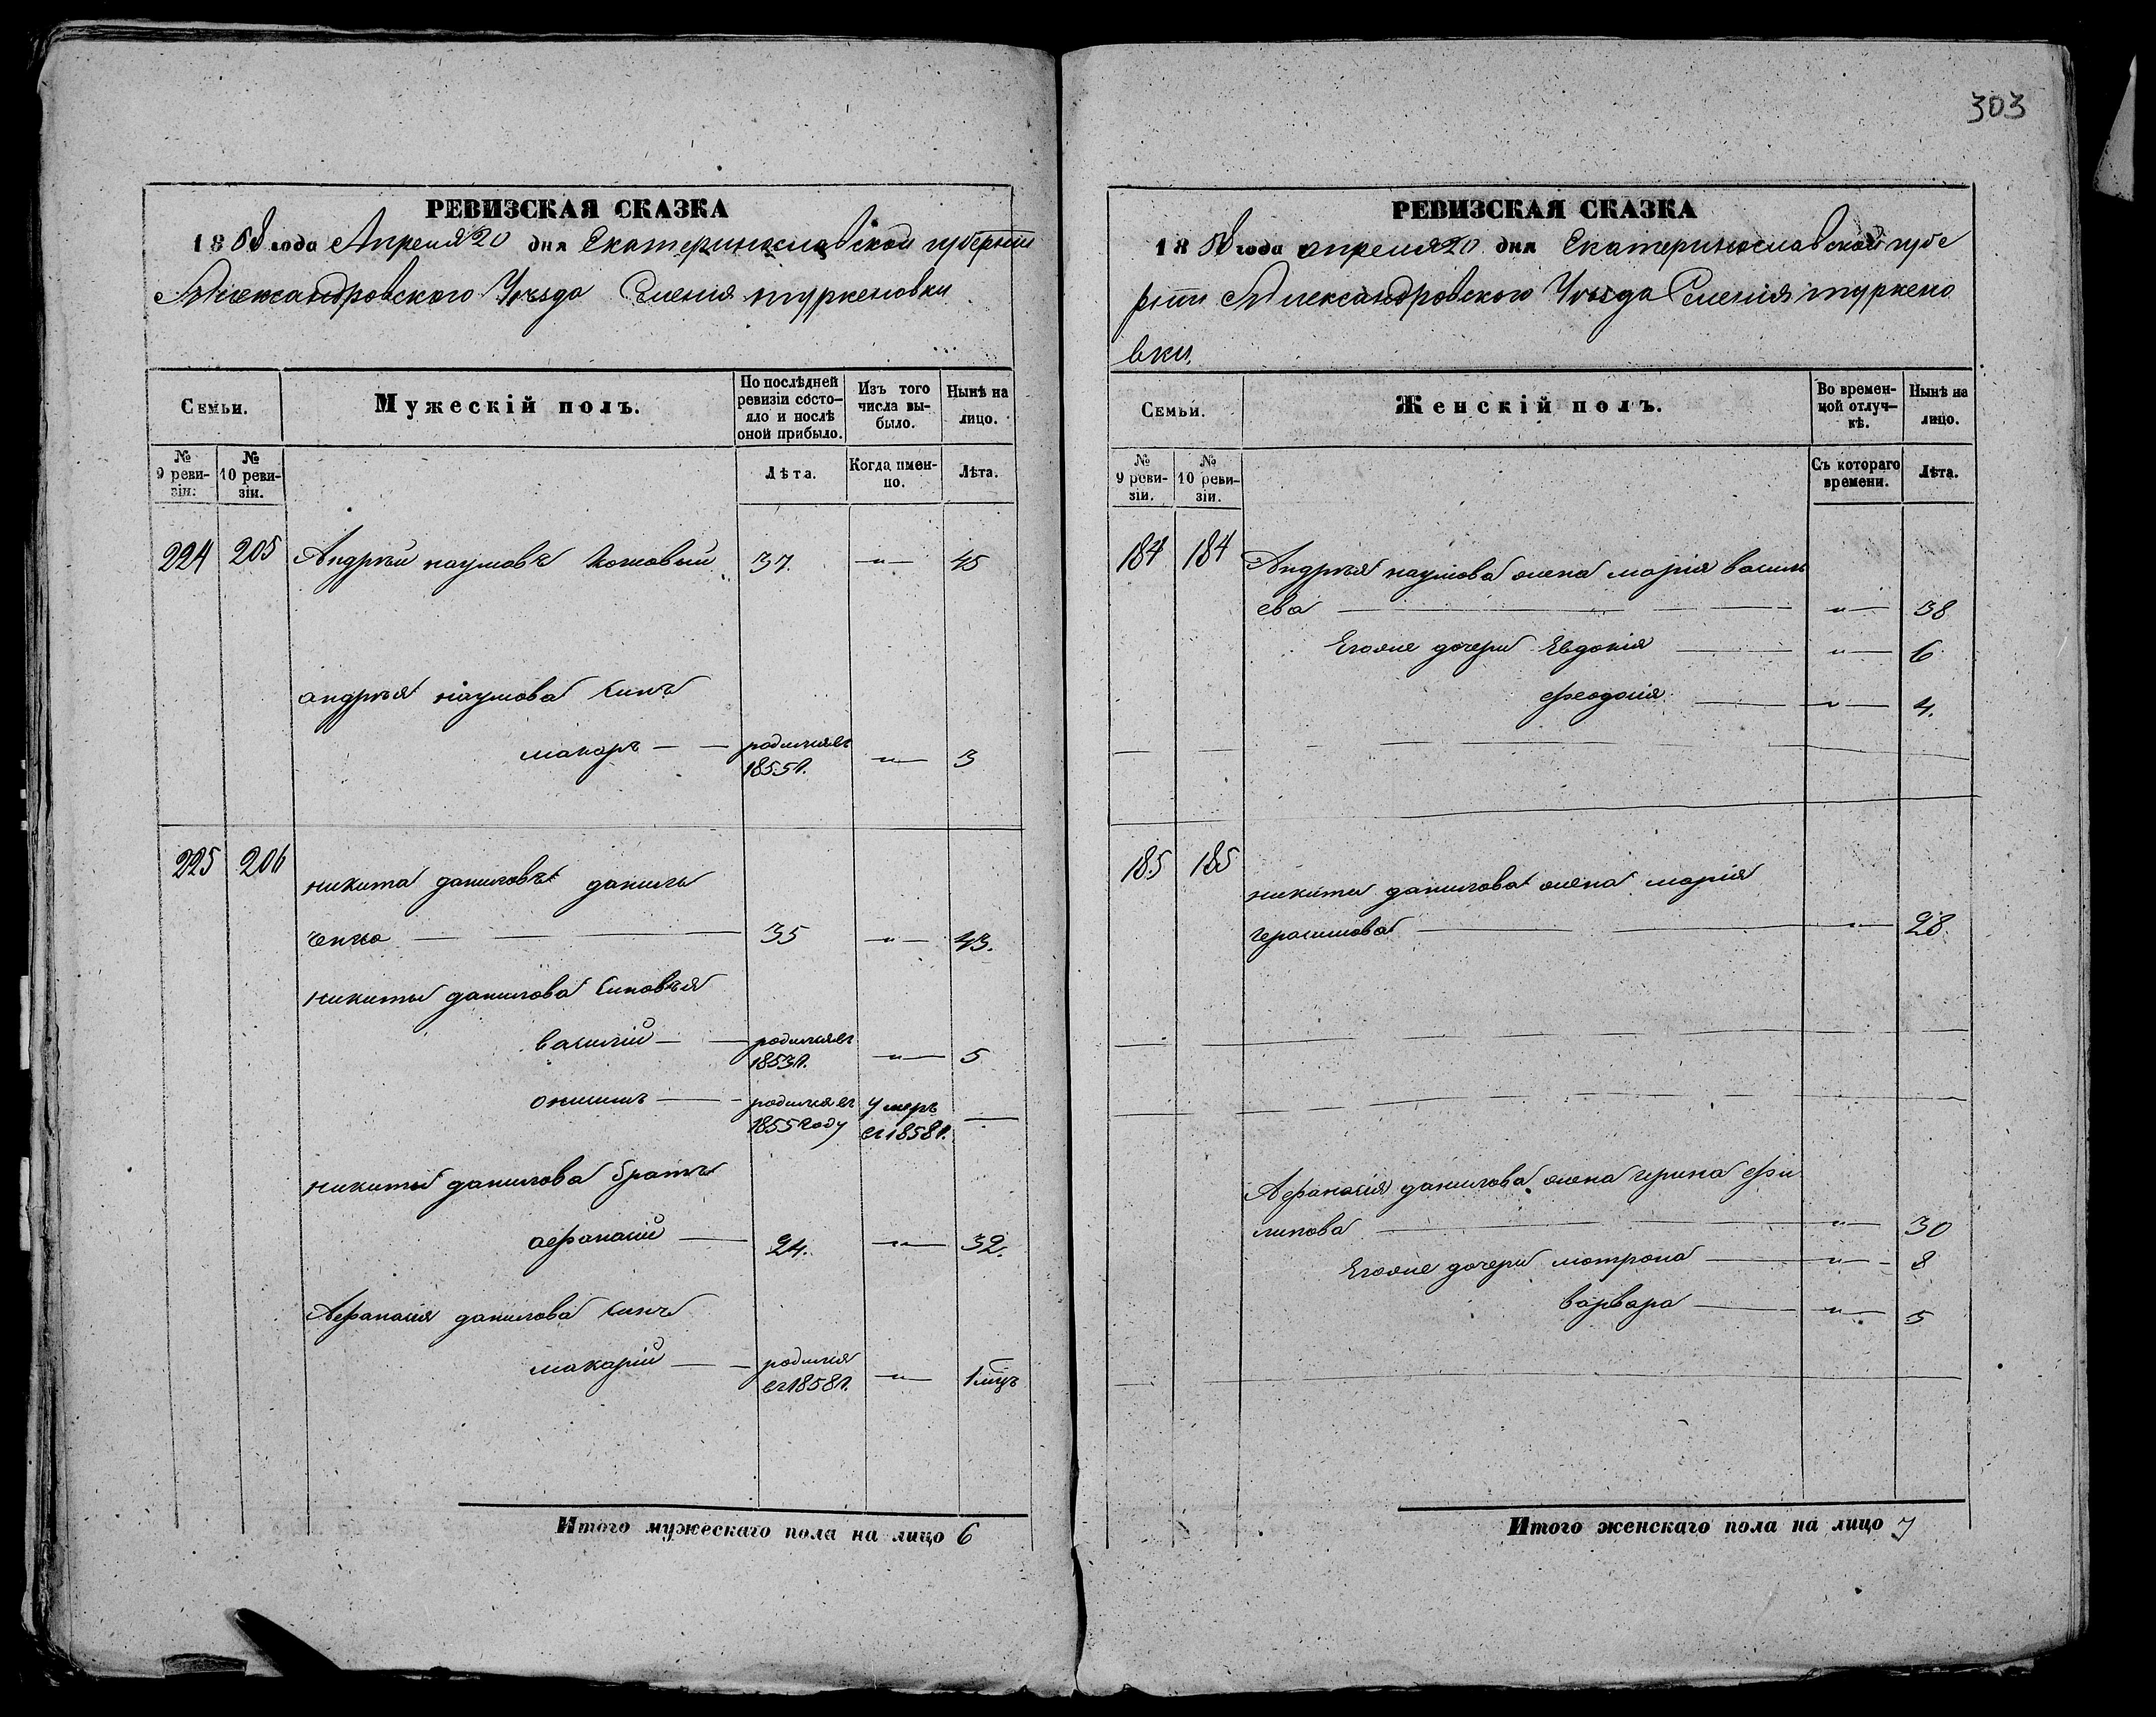 303
РЕВИЗСКАЯ СКАЗКА
1858 года Апреля 20 дня Екатеринославской губернии
Александровского Уѣзда Селенія туркеновки
Семьи.
Мужескій полъ.
По послѣдней ревизіи состояло и послѣ оной прибыло.
Изъ того числа выбыло.
Нынѣ на лицо.
№ 9 ревизіи.
№ 10 ревизіи.
Лѣта.
Когда именно.
Лѣта.
224 205 Андрѣй наумовъ Кожовый 37. —„— 45
андрѣя наумова Синъ
макаръ — — родился въ —„— 3
1855 г.
225 206
никита даниловъ даниль
ченко — — 35 —„— 43.
никиты данилова Синовья
василий — — родился въ —„— 5
1853 г.
онисимъ — — родился въ Умеръ —
1855 году въ 1858 г.
никиты данилова братъ
афанасий — 24. —„— 32.
Афанасия данилова Синъ
макарий — — родился —„— 1 мцъ
въ 1858 г.
Итого мужескаго пола на лицо 6
РЕВИЗСКАЯ СКАЗКА
1858 года апреля 20 дня Екатеринославской губе
рніи Александровского Уѣзда Селенія туркено
вки.
Семьи.
Женскій полъ.
Во временной отлучкѣ.
Нынѣ на лицо.
№ 9 ревизіи.
№ 10 ревизіи.
Съ котораго времени.
Лѣта.
184 184 Андрѣя наумова жена марія василь
ева — — —„— 38
Егоже дочери Евдокия — —„— 6
феодосия — —„— 4.
185 185
никиты данилова жена мария
герасимова — — —„— 28
Афанасия данилова жена ирина фи
липова — — —„— 30
Егоже дочери мотрона — —„— 8
варвара — —„— 5
Итого женскаго пола на лицо 7